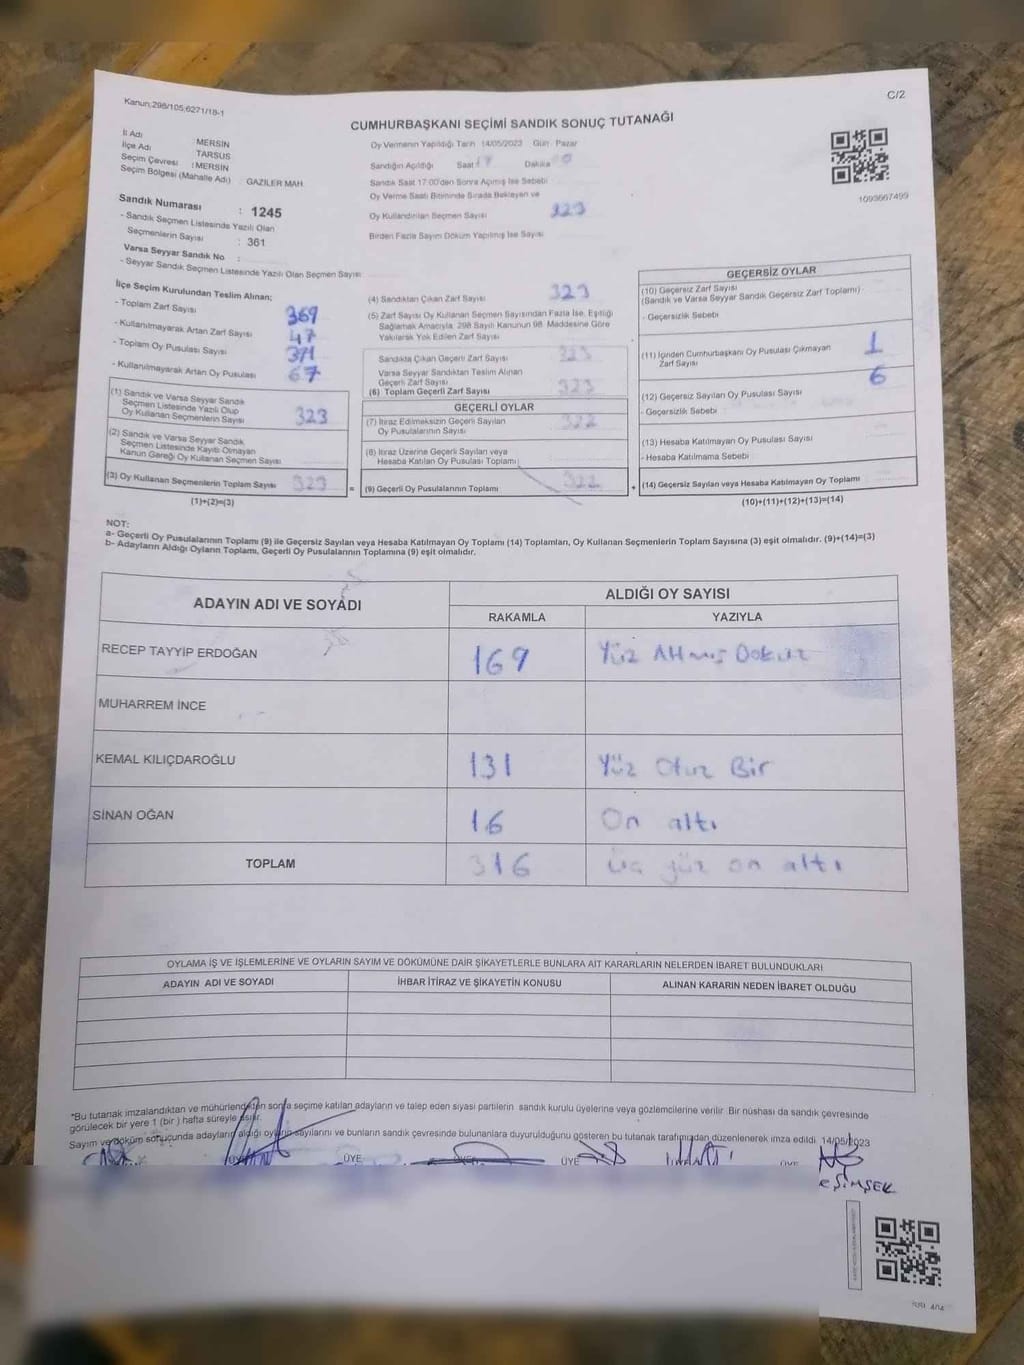 Kanun;298/105;6271/18-1
C/2
CUMHURBAŞKANI SEÇİMİ SANDIK SONUÇ TUTANAĞI
İl Adı MERSİN
İlçe Adı TARSUS
Seçim Çevresi : MERSİN
Seçim Bölgesi (Mahalle Adı) GAZİLER MAH.
Sandık Numarası : 1245
- Sandık Seçmen Listesinde Yazılı Olan
Seçmenlerin Sayısı : 361
Varsa Seyyar Sandık No :
- Seyyar Sandık Seçmen Listesinde Yazılı Olan Seçmen Sayısı
Oy Vermenin Yapıldığı Tarih 14/05/2023 Gün Pazar
Sandığın Açıldığı Saat Dakika
Sandık Saat 17:00'den Sonra Açılmış İse Sebebi
Oy Verme Saati Bitiminde Sırada Bekleyen ve
Oy Kullandırılan Seçmen Sayısı 323
Birden Fazla Sayım Döküm Yapılmış İse Sayısı
1093667499
İlçe Seçim Kurulundan Teslim Alınan;
- Toplam Zarf Sayısı 369
- Kullanılmayarak Artan Zarf Sayısı 47
- Toplam Oy Pusulası Sayısı 371
- Kullanılmayarak Artan Oy Pusulası 67
(1) Sandık ve Varsa Seyyar Sandık
Seçmen Listesinde Yazılı Olup
Oy Kullanan Seçmenlerin Sayısı 323
(2) Sandık ve Varsa Seyyar Sandık
Seçmen Listesinde Kayıtlı Olmayan
Kanun Gereği Oy Kullanan Seçmen Sayısı
(3) Oy Kullanan Seçmenlerin Toplam Sayısı 323
(1)+(2)=(3)
(4) Sandıktan Çıkan Zarf Sayısı 323
(5) Zarf Sayısı Oy Kullanan Seçmen Sayısından Fazla İse, Eşitliği
Sağlamak Amacıyla 298 Sayılı Kanunun 98. Maddesine Göre
Yakılarak Yok Edilen Zarf Sayısı
Sandıkta Çıkan Geçerli Zarf Sayısı 323
Varsa Seyyar Sandıktan Teslim Alınan
Geçerli Zarf Sayısı
(6) Toplam Geçerli Zarf Sayısı 323
GEÇERLİ OYLAR
(7) İtiraz Edilmeksizin Geçerli Sayılan
Oy Pusulalarının Sayısı 322
(8) İtiraz Üzerine Geçerli Sayılan veya
Hesaba Katılan Oy Pusulası Toplamı
= (9) Geçerli Oy Pusulalarının Toplamı 322
GEÇERSİZ OYLAR
(10) Geçersiz Zarf Sayısı
(Sandık ve Varsa Seyyar Sandık Geçersiz Zarf Toplamı)
- Geçersizlik Sebebi
(11) İçinden Cumhurbaşkanı Oy Pusulası Çıkmayan
Zarf Sayısı 1
(12) Geçersiz Sayılan Oy Pusulası Sayısı 6
- Geçersizlik Sebebi
(13) Hesaba Katılmayan Oy Pusulası Sayısı
- Hesaba Katılmama Sebebi
+ (14) Geçersiz Sayılan veya Hesaba Katılmayan Oy Toplamı
(10)+(11)+(12)+(13)=(14)
NOT:
a- Geçerli Oy Pusulalarının Toplamı (9) ile Geçersiz Sayılan veya Hesaba Katılmayan Oy Toplamı (14) Toplamları, Oy Kullanan Seçmenlerin Toplam Sayısına (3) eşit olmalıdır. (9)+(14)=(3)
b- Adayların Aldığı Oyların Toplamı, Geçerli Oy Pusulalarının Toplamına (9) eşit olmalıdır.
ADAYIN ADI VE SOYADI
ALDIĞI OY SAYISI
RAKAMLA YAZIYLA
RECEP TAYYİP ERDOĞAN 169 Yüz Altmış Dokuz
MUHARREM İNCE
KEMAL KILIÇDAROĞLU 131 Yüz Otuz Bir
SİNAN OĞAN 16 On altı
TOPLAM 316 üç yüz on altı
OYLAMA İŞ VE İŞLEMLERİNE VE OYLARIN SAYIM VE DÖKÜMÜNE DAİR ŞİKAYETLERLE BUNLARA AİT KARARLARIN NELERDEN İBARET BULUNDUKLARI
ADAYIN ADI VE SOYADI İHBAR İTİRAZ VE ŞİKAYETİN KONUSU ALINAN KARARIN NEDEN İBARET OLDUĞU
*Bu tutanak imzalandıktan ve mühürlendikten sonra seçime katılan adayların ve talep eden siyasi partilerin sandık kurulu üyelerine veya gözlemcilerine verilir. Bir nüshası da sandık çevresinde
görülecek bir yere 1 (bir) hafta süreyle asılır.
Sayım ve döküm sonucunda adayların aldığı oyların sayılarını ve bunların sandık çevresinde bulunanlara duyurulduğunu gösteren bu tutanak tarafımızdan düzenlenerek imza edildi. 14/05/2023
ÜYE ÜYE ÜYE